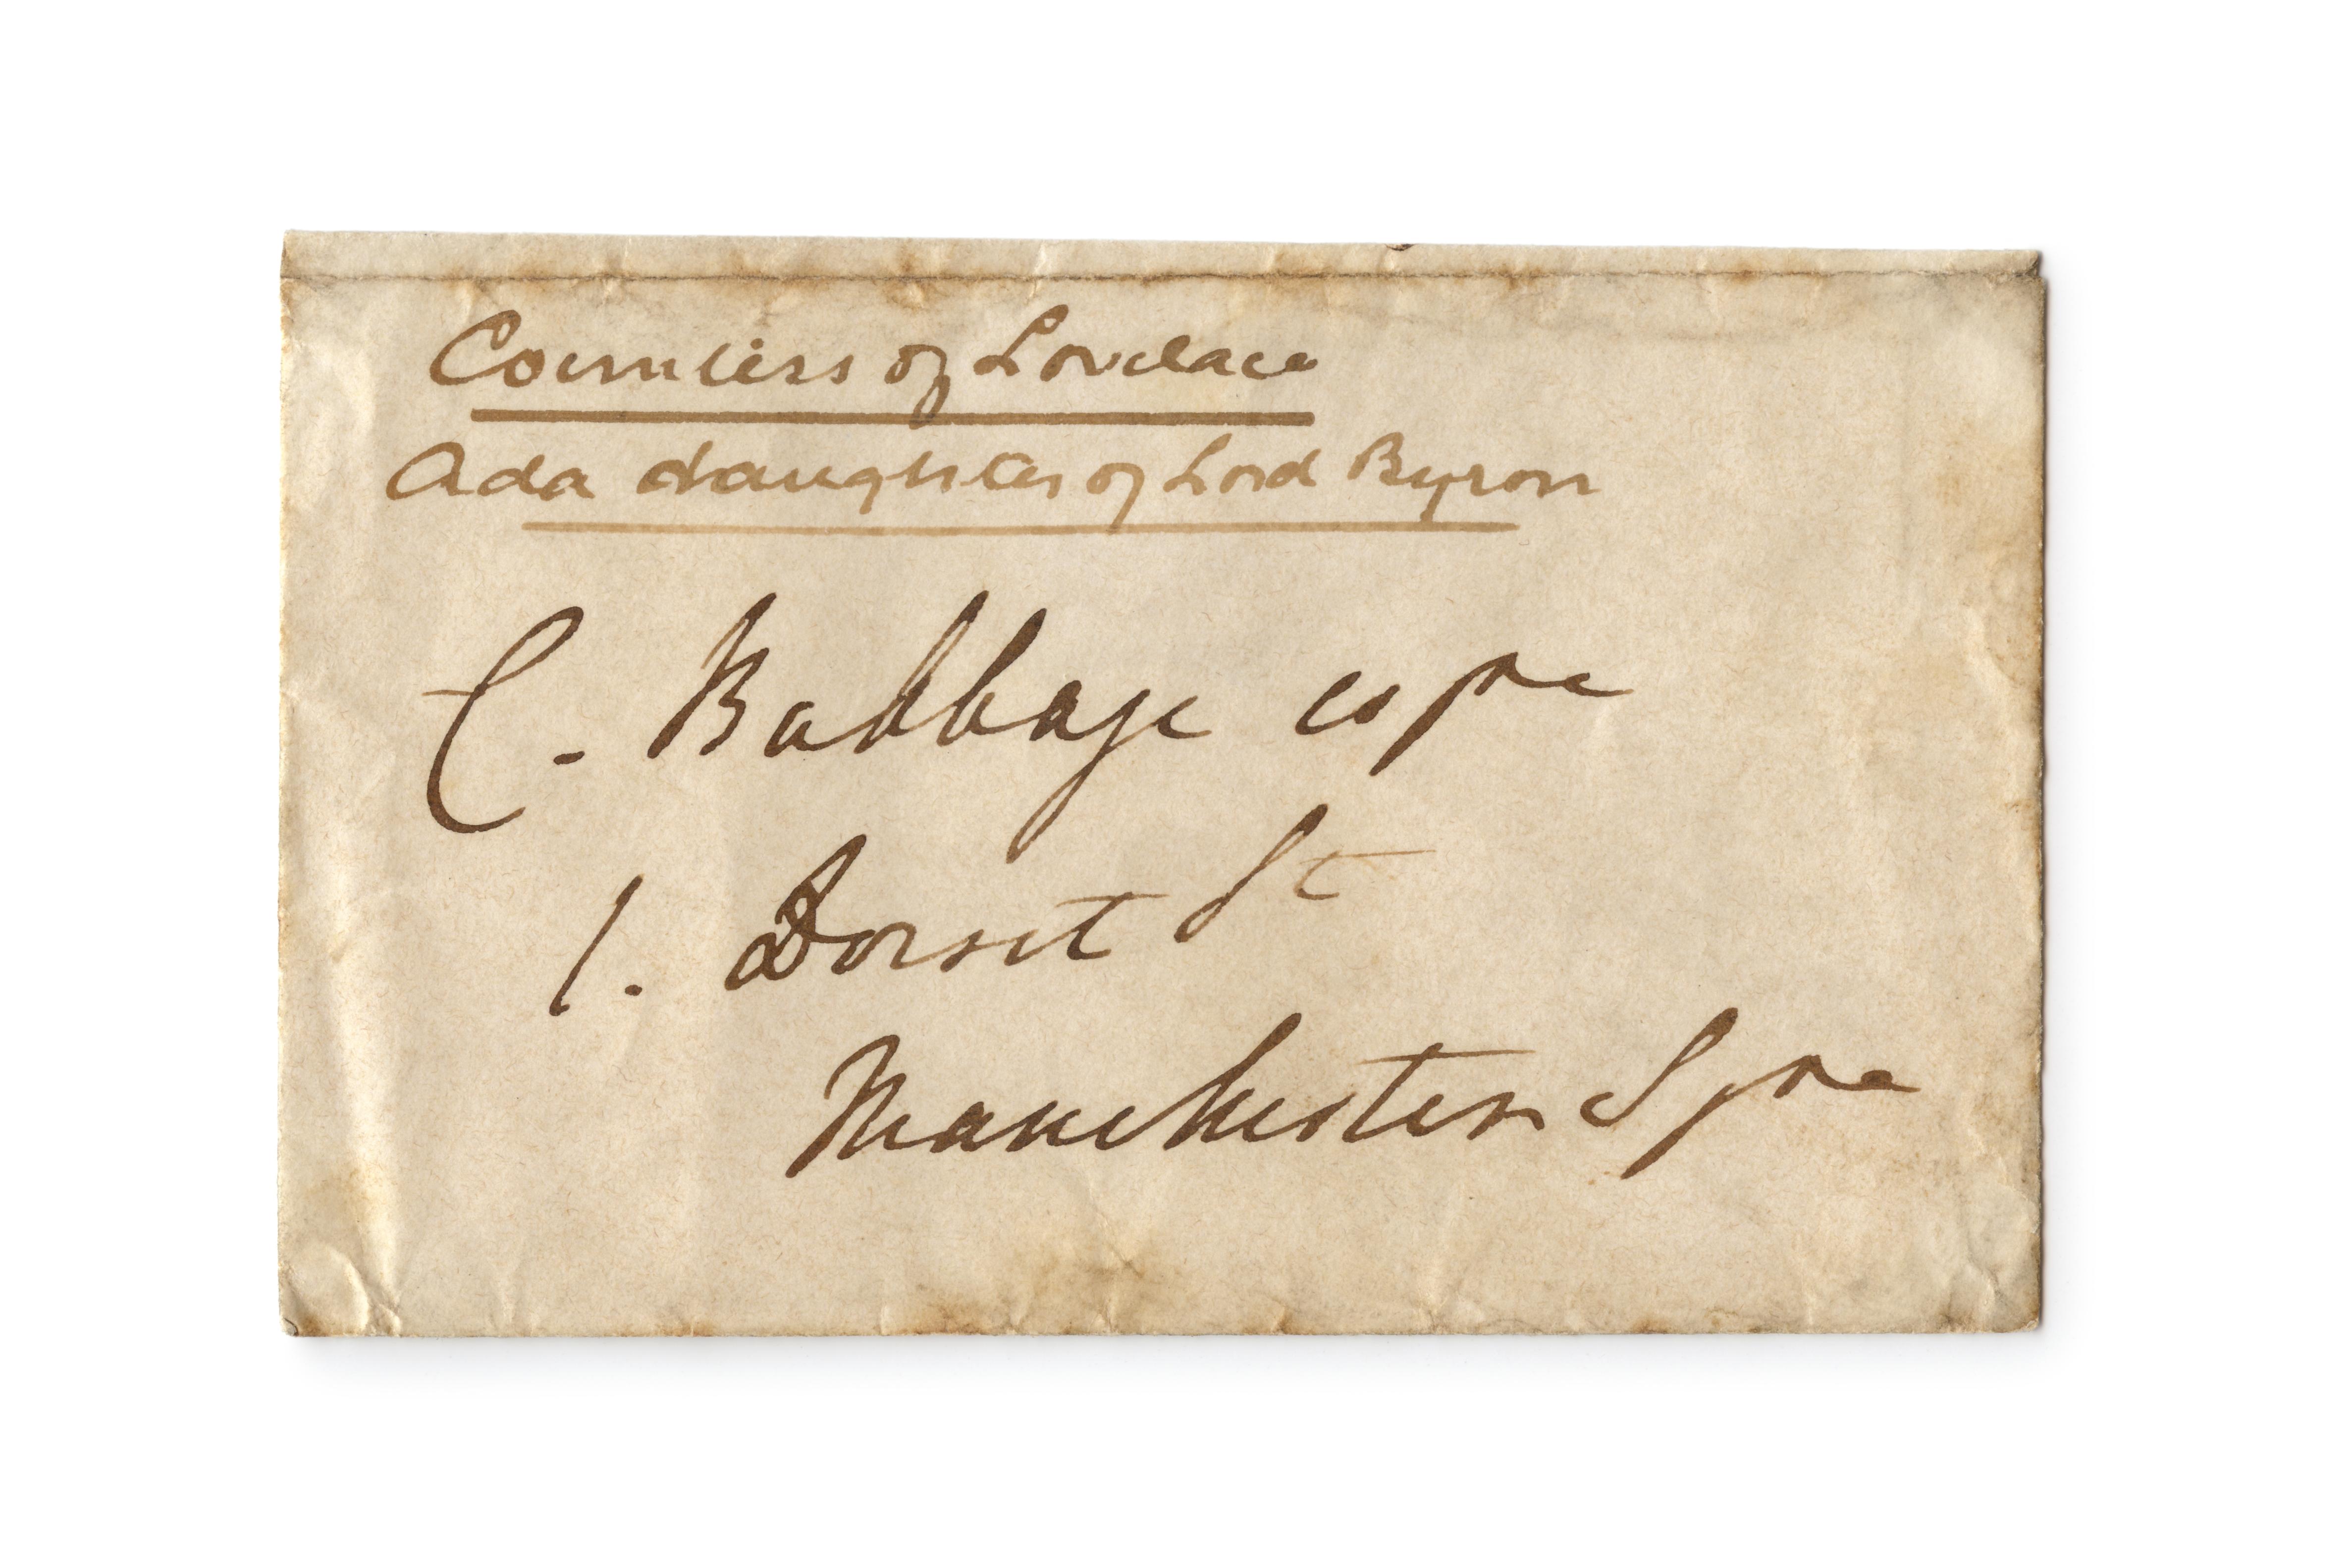 Countess of Lovelace
Ada daughter of Lord Byron
C. Babbage esqre
1. Dorset St
Manchester Sqre